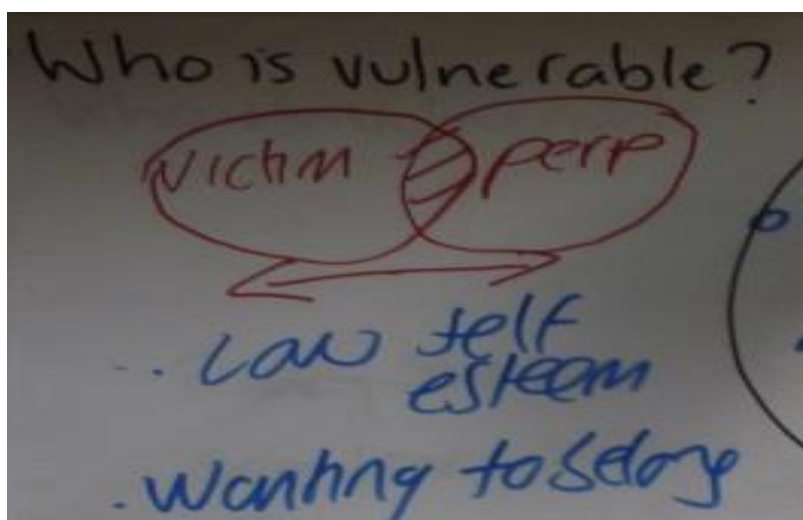 Who is vulnerable?
victim perp
. Low self
esteem
. Wanting to belong